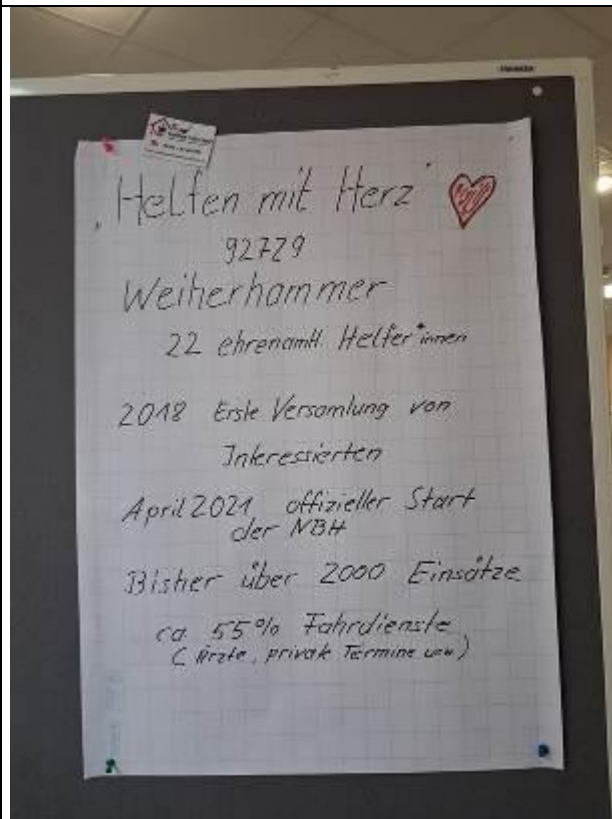 „Helfen mit Herz"
92729
Weiherhammer
22 ehrenamtl. Helfer*innen
2018 Erste Versamlung von
Interessierten
April 2021 offizieller Start
der NBH
Bisher über 2000 Einsätze
ca. 55% Fahrdienste
(Ärzte, private Termine usw)